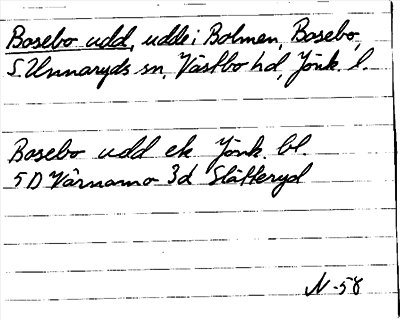 Bosebo udd, udde i Bolmen, Bosebo,
S. Unnaryds sn, Västbo hd, Jönk. l.
Bosebo udd ek Jönk. bl.
5 D Värnamo 3d Slätteryd
N-58